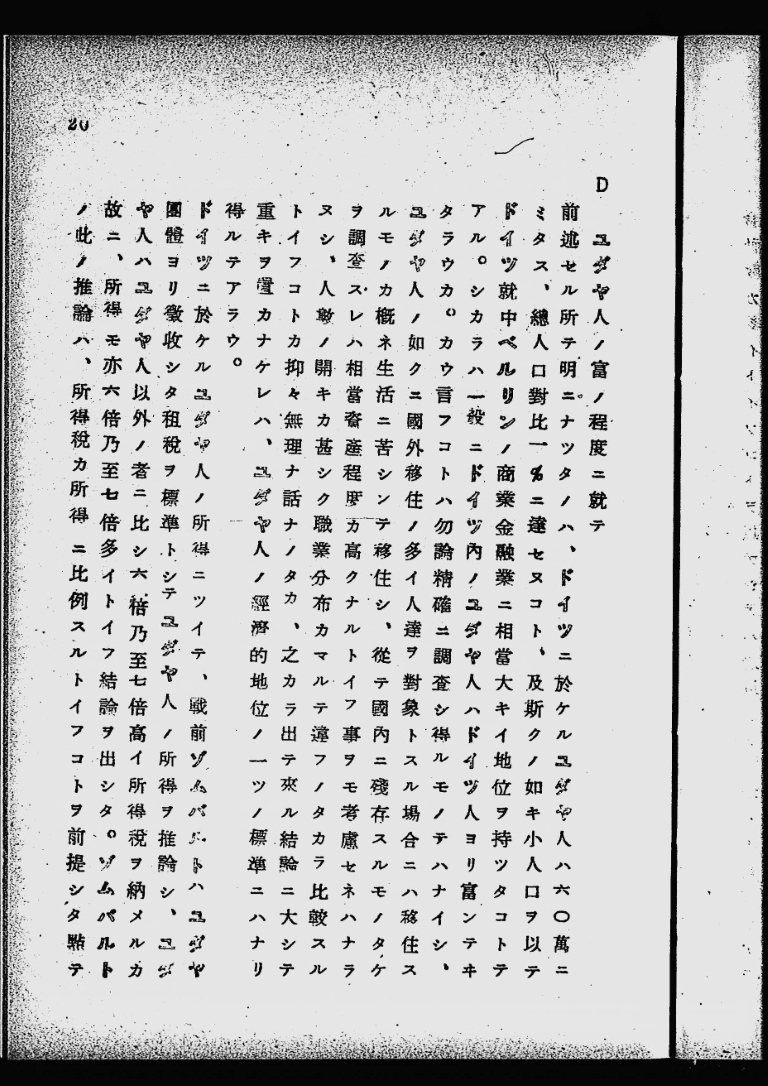 20
D
ユダヤ人ノ富ノ程度ニ就テ
前述セル所テ明ニナツタノハ、ドイツニ於ケルユダヤ人ハ六〇萬ニ
ミタス、總人口對比一%ニ達セヌコト、及斯クノ如キ小人口ヲ以テ
ドイツ就中ベルリンノ商業金融業ニ相當大キイ地位ヲ持ツタコトテ
アル。シカラハ一般ニドイツ内ノユダヤ人ハドイツ人ヨリ富ンテヰ
タラウカ。カウ言フコトハ勿論精確ニ調査シ得ルモノテハナイシ、
ユダヤ人ノ如クニ國外移住ノ多イ人達ヲ對象トスル場合ニハ移住ス
ルモノカ概ネ生活ニ苦シンテ移住シ、從テ國内ニ殘存スルモノタケ
ヲ調査スレハ相當資產程度カ高クナルトイフ事ヲモ考慮セネハナラ
ヌシ、人數ノ開キカ甚シク職業分布カマルテ違フノタカラ比較スル
トイフコトカ抑々無理ナ話ナノタカ、之カラ出テ來ル結論ニ大シテ
重キヲ置カナケレハ、ユダヤ人ノ經濟的地位ノ一ツノ標準ニハナリ
得ルテアラウ。
ドイツニ於ケルユダヤ人ノ所得ニツイテ、戰前ゾムバルトハユダヤ
團體ヨリ徵收シタ租稅ヲ標準トシテユダヤ人ノ所得ヲ推論シ、ユダ
ヤ人ハユダヤ人以外ノ者ニ比シ六倍乃至七倍高イ所得稅ヲ納メルカ
故ニ、所得モ亦六倍乃至七倍多イトイフ結論ヲ出シタ。ゾムバルト
ノ此ノ推論ハ、所得稅カ所得ニ比例スルトイフコトヲ前提シタ點テ